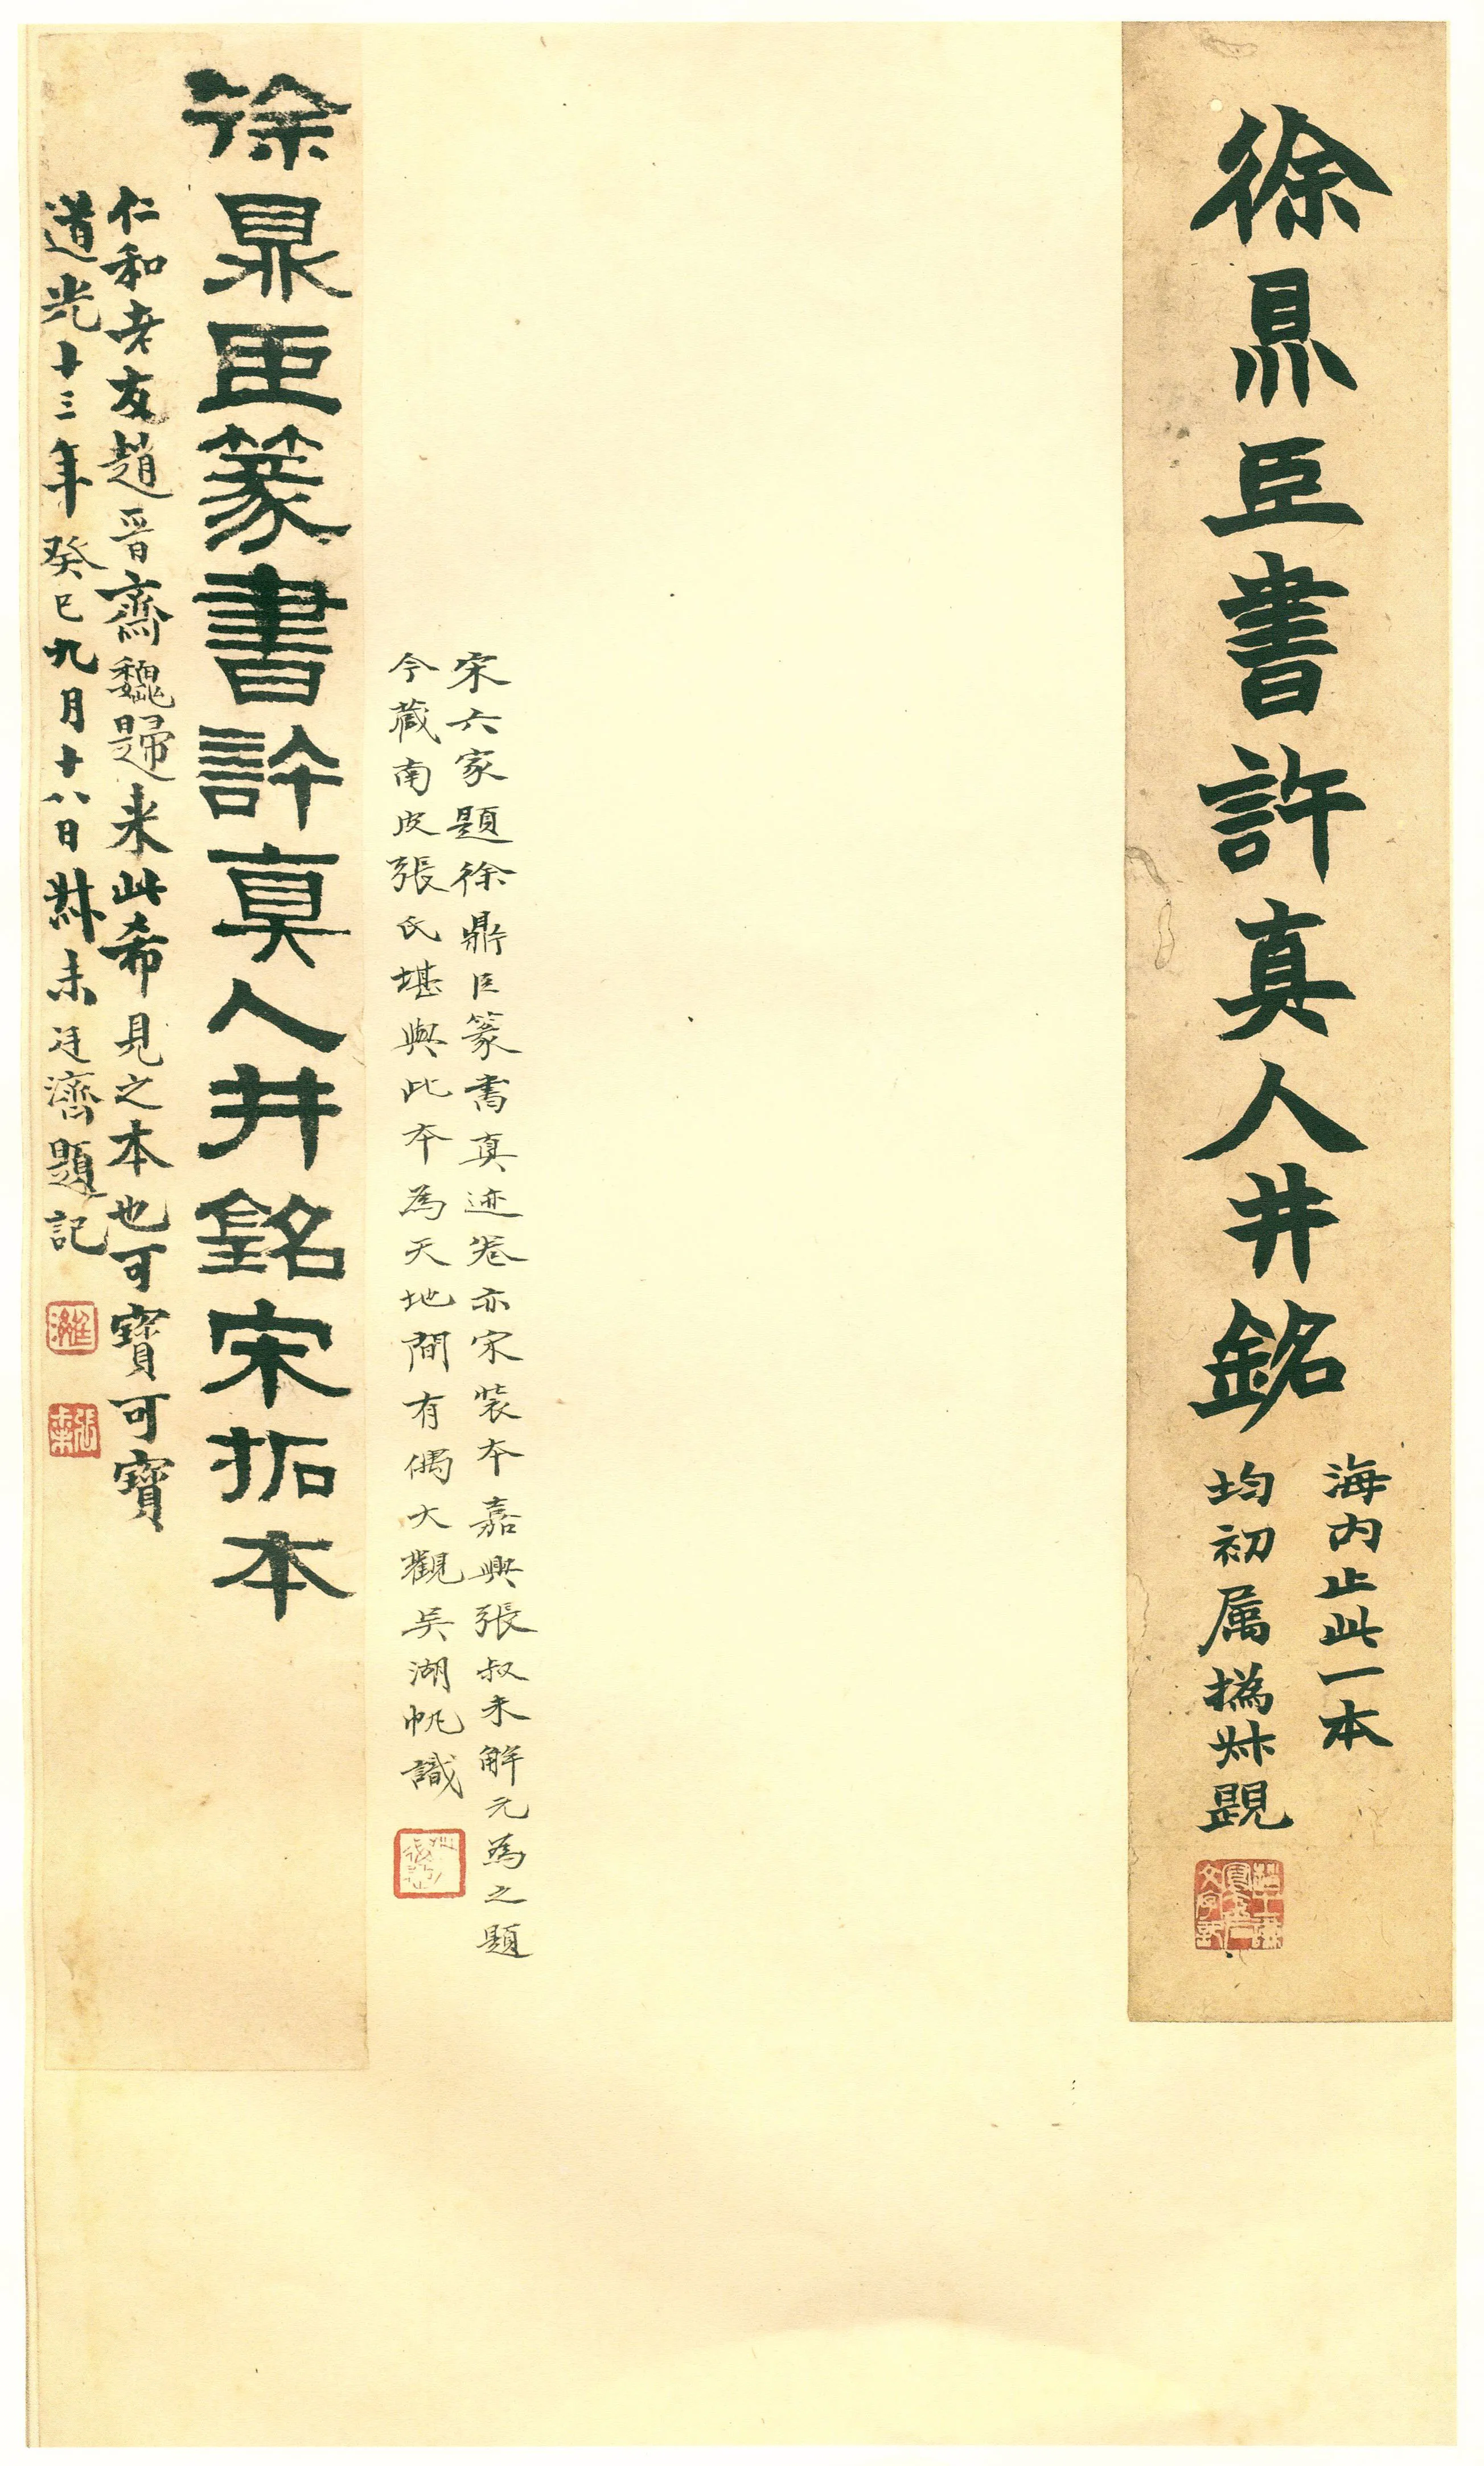 徐鼎臣書許真人井銘
海内止此一本
均初属撝叔題
宋六家題徐鼎臣篆書真迹卷亦宋裝本嘉興張叔未解元為之題
今藏南皮張氏堪與此本為天地間有偶大觀吳湖帆識
徐鼎臣篆書許真人井銘宋拓本
仁和老友趙晉齋魏歸来此希見之本也可寶可寶
道光十三年癸巳九月十八日叔未廷濟題記
廷濟
張叔未